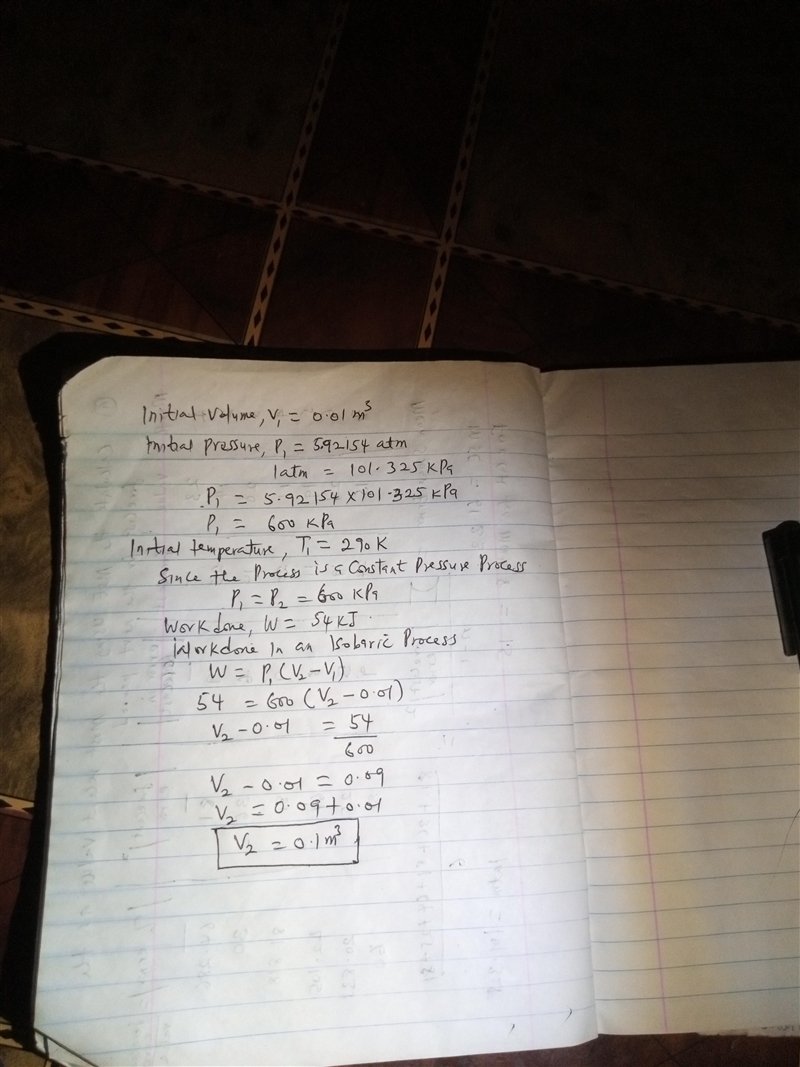 Initial Volume, V₁ = 0.01 m³
Initial Pressure, P₁ = 5.92154 atm
1atm = 101.325 KPa
P₁ = 5.92154 x 101.325 KPa
P₁ = 600 KPa
Initial temperature, T₁ = 290K
Since the Process is a Constant Pressure Process
P₁ = P₂ = 600 KPa
Workdone, W = 54 KJ.
Workdone In an Isobaric Process
W = P₁ (V₂ - V₁)
54 = 600 (V₂ - 0.01)
V₂ - 0.01 = 54/600
V₂ - 0.01 = 0.09
V₂ = 0.09 + 0.01
V₂ = 0.1 m³